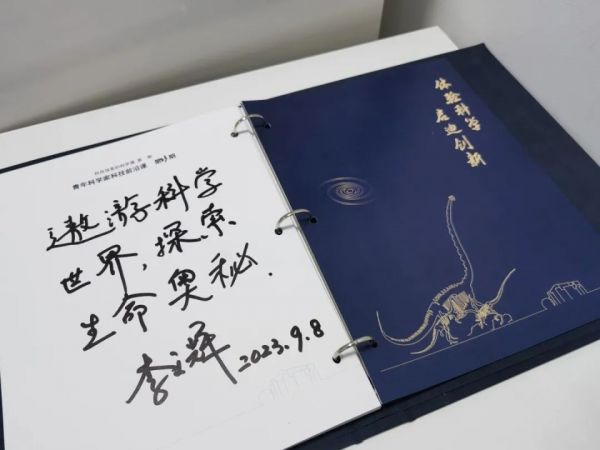 青年科学家科技前沿课
遨游科学
世界，探索
生命奥秘.
李
2023.9.8
体验科学
启迪创新